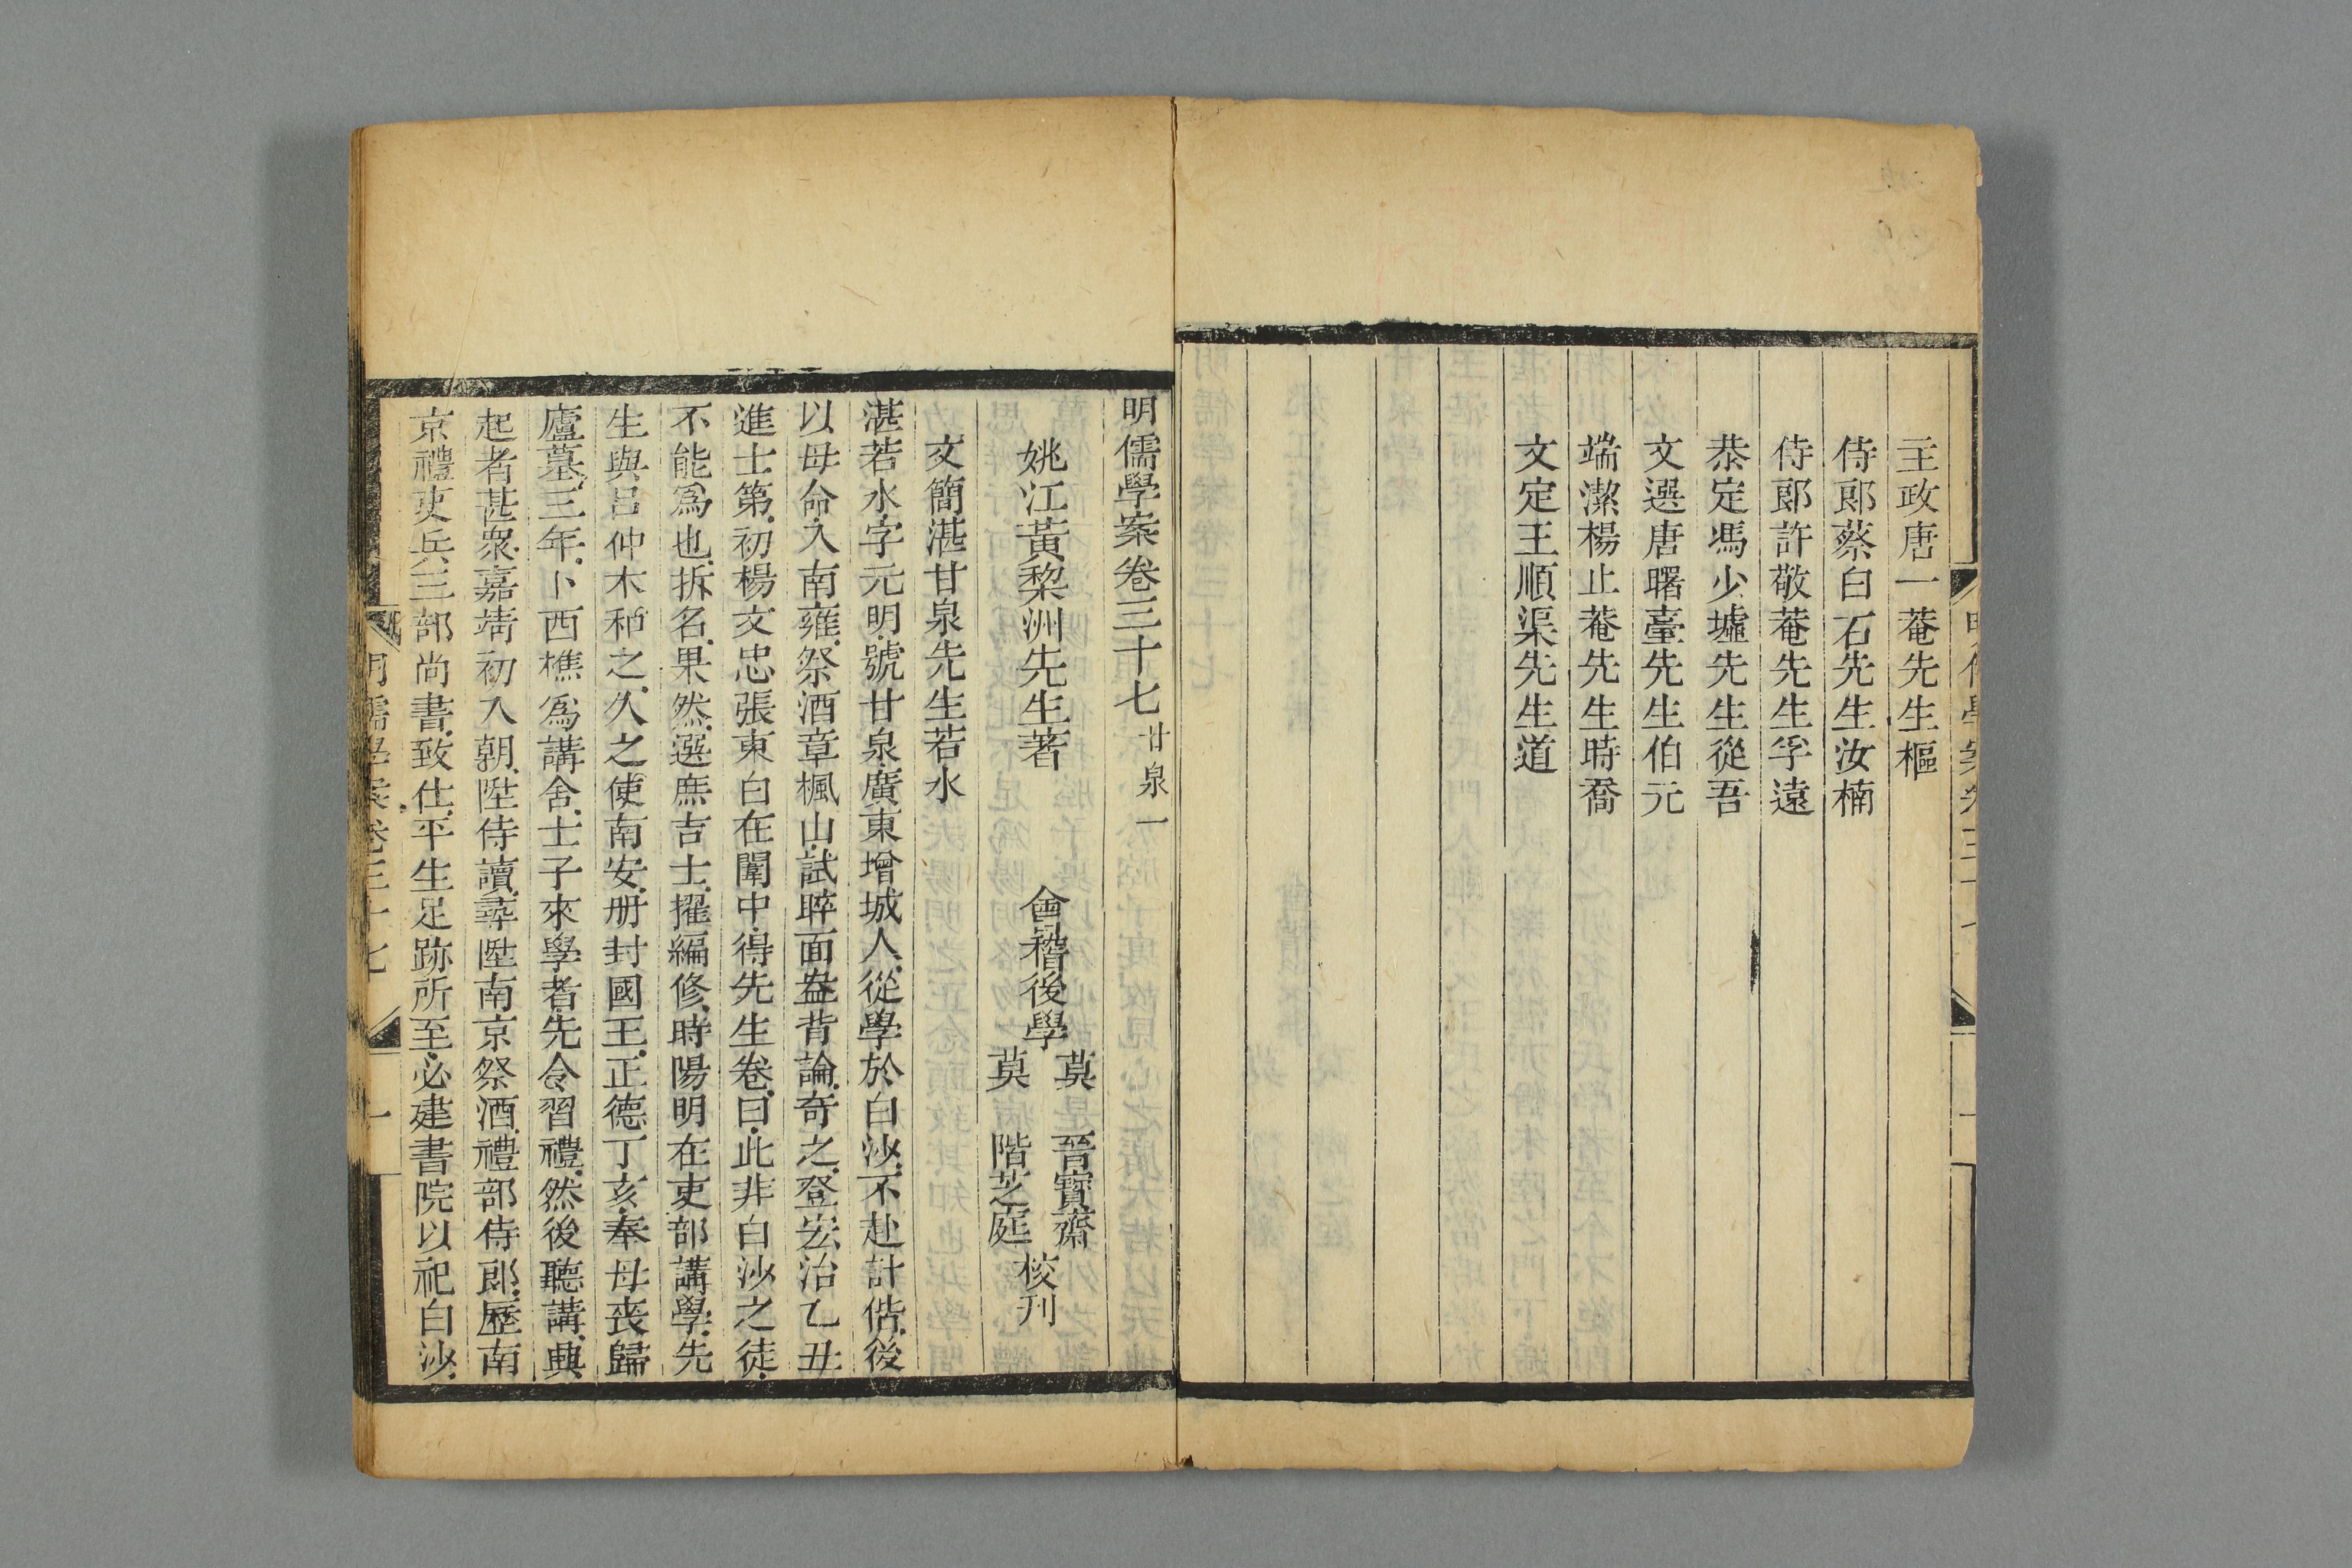 主政唐一菴先生樞
侍郎蔡白石先生汝楠
侍郎許敬菴先生孚遠
恭定馮少墟先生從吾
文選唐曙臺先生伯元
端潔楊止菴先生時喬
文定王順渠先生道
明儒學案卷三十七 甘泉一
姚江黃棃洲先生著
會稽後學 莫晉寶齋 莫階芝庭 校刊
文簡湛甘泉先生若水
湛若水字元明號甘泉廣東增城人從學於白沙不赴計偕後
以母命入南雍祭酒章楓山試睟面盎背論奇之登宏治乙丑
進士第初楊文忠張東白在闈中得先生卷曰此非白沙之徒
不能爲也拆名果然選庶吉士擢編修時陽明在吏部講學先
生與呂仲木和之久之使南安册封國王正德丁亥奉母喪歸
廬墓三年卜西樵爲講舍士子來學者先令習禮然後聽講興
起者甚衆嘉靖初入朝陞侍讀尋陞南京祭酒禮部侍郎歷南
京禮吏兵三部尚書致仕平生足跡所至必建書院以祀白沙
明儒學案卷三十七 一